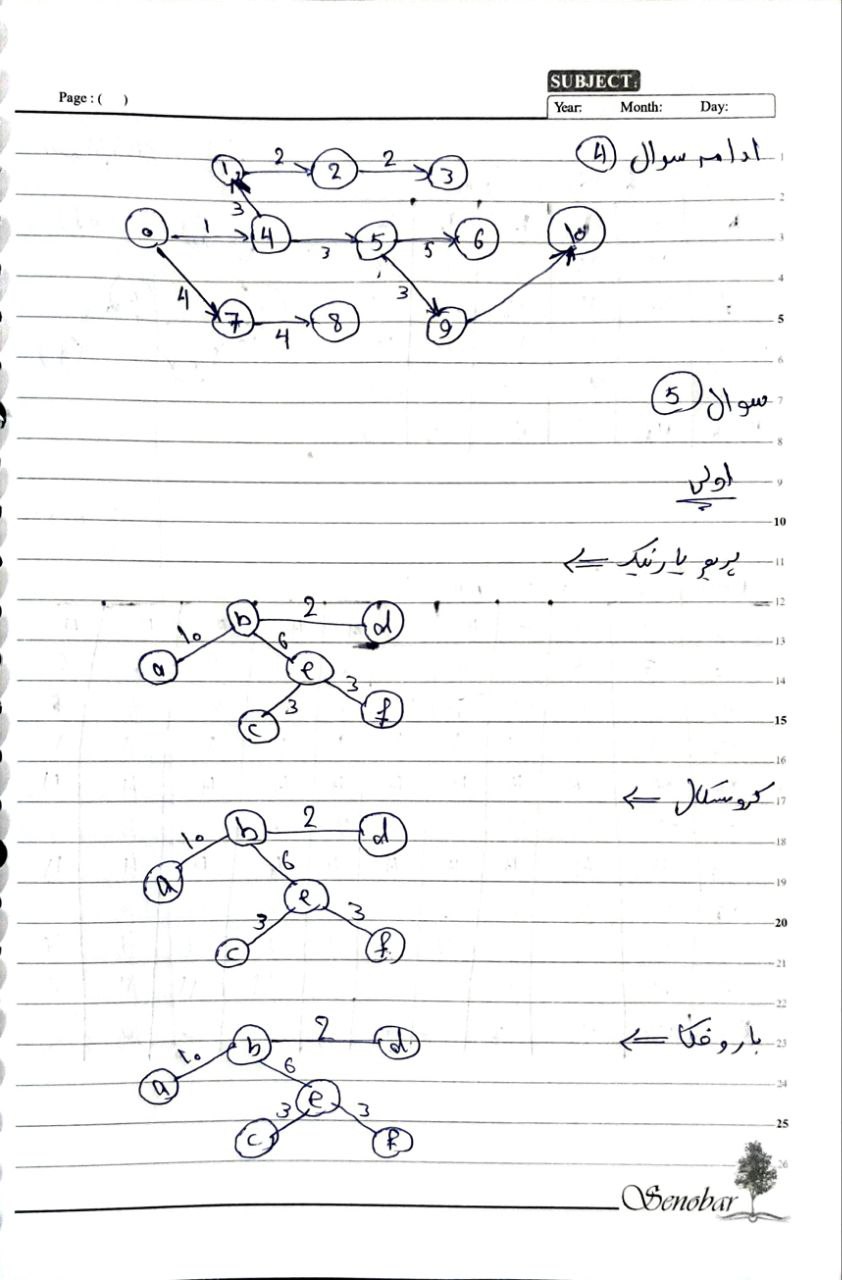 Page : ( )
SUBJECT:
Year: Month: Day:
ادامه سوال 4
1 2 2 2 3
3
0 1 4 3 5 5 6 10
4 3
7 4 8 9
سوال 5
اولی
پریم یارنیک ⇐
b 2 d
10 6
a e 3
3 f
c
کروسکال ⇐
b 2 d
10 6
a e
3 3
c f
باروفکا ⇐
b 2 d
10 6
a e
3 3
c f
1
2
3
4
5
6
7
8
9
10
11
12
13
14
15
16
17
18
19
20
21
22
23
24
25
26
Senobar